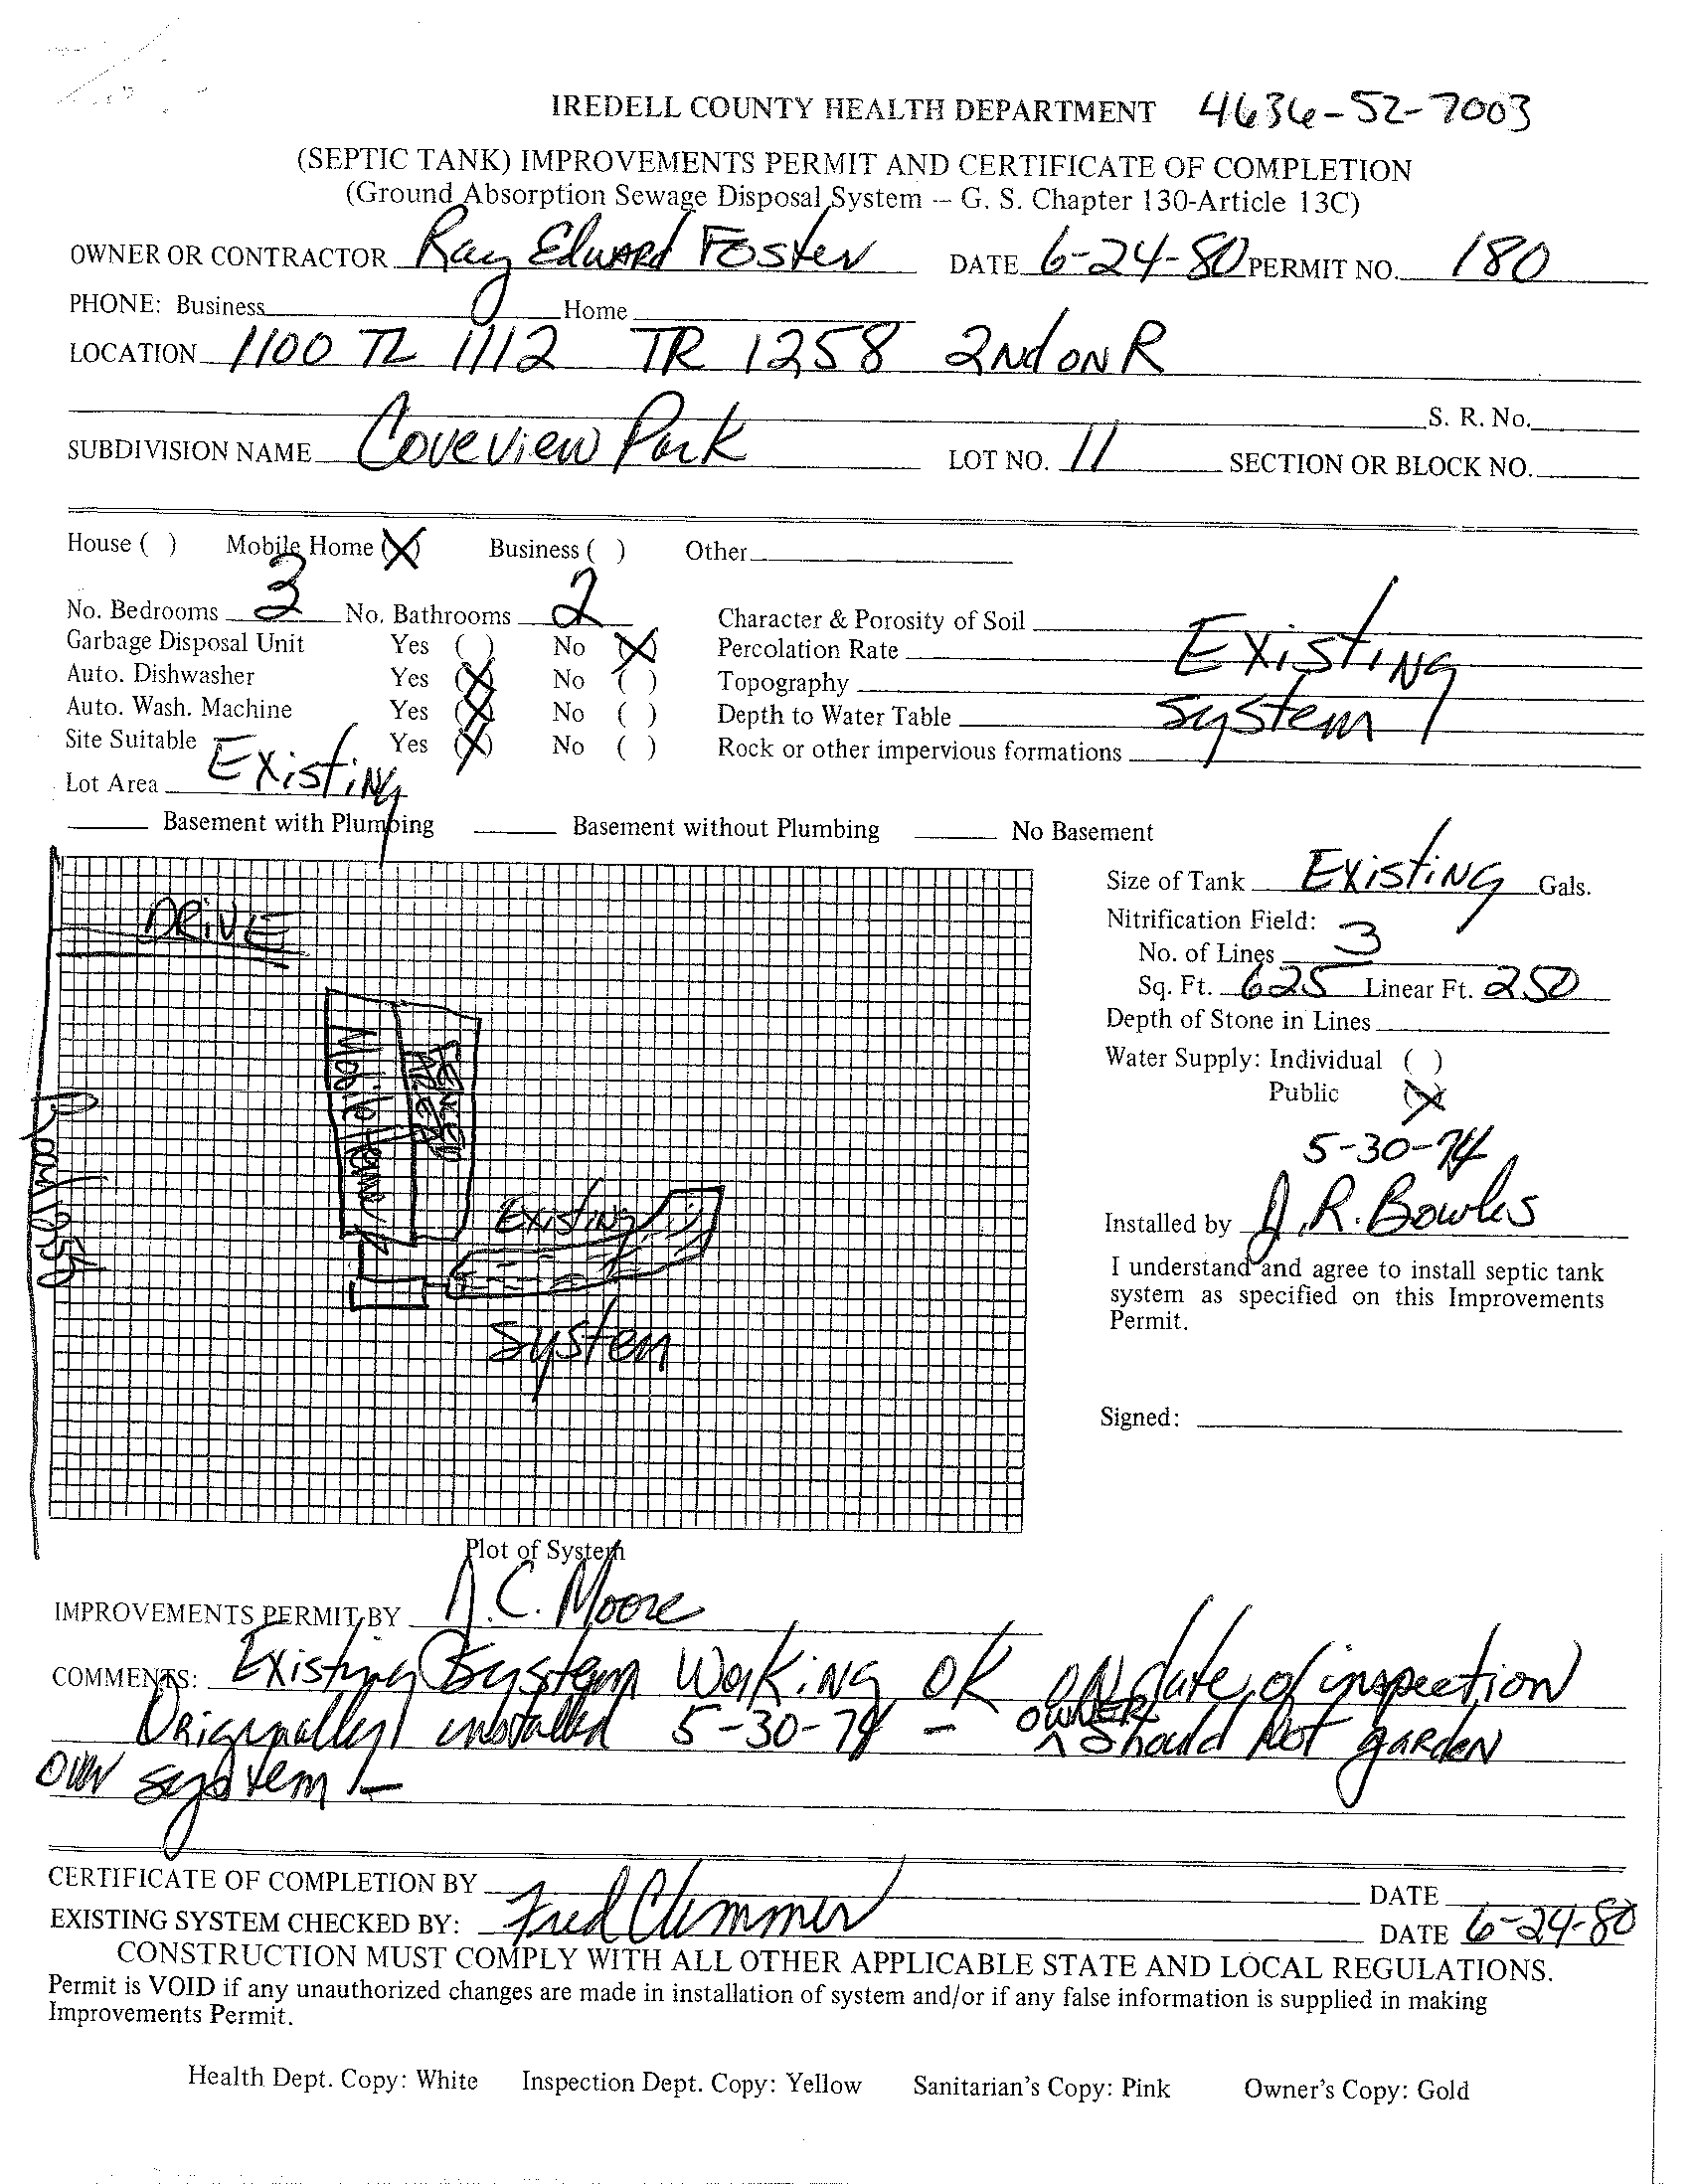 IREDELL COUNTY HEALTH DEPARTMENT 4636-52-7003
(SEPTIC TANK) IMPROVEMENTS PERMIT AND CERTIFICATE OF COMPLETION
(Ground Absorption Sewage Disposal System -- G. S. Chapter 130-Article 13C)
OWNER OR CONTRACTOR Ray Edward Foster DATE 6-24-80 PERMIT NO. 180
PHONE: Business Home
LOCATION 1100 TL 1112 TR 1258 2nd on R
S. R. No.
SUBDIVISION NAME Coveview Park LOT NO. 11 SECTION OR BLOCK NO.
House ( ) Mobile Home (X) Business ( ) Other
No. Bedrooms 3 No. Bathrooms 2 Character & Porosity of Soil Existing
Garbage Disposal Unit Yes ( ) No (X) Percolation Rate
Auto. Dishwasher Yes (X) No ( ) Topography
Auto. Wash. Machine Yes (X) No ( ) Depth to Water Table system
Site Suitable Yes (X) No ( ) Rock or other impervious formations
Lot Area Existing
Basement with Plumbing Basement without Plumbing No Basement
DRIVE
Mobile Home
Road 1258
Existing
System
Size of Tank Existing Gals.
Nitrification Field:
No. of Lines 3
Sq. Ft. 625 Linear Ft. 250
Depth of Stone in Lines
Water Supply: Individual ( )
Public (X)
5-30-74
Installed by J. R. Bowles
I understand and agree to install septic tank
system as specified on this Improvements
Permit.
Signed:
Plot of System
IMPROVEMENTS PERMIT BY A. C. Moore
COMMENTS: Existing System Working OK on date of inspection
Originally installed 5-30-74 - OWNER should Not garden
over system -
CERTIFICATE OF COMPLETION BY DATE
EXISTING SYSTEM CHECKED BY: Fred Clemmer DATE 6-24-80
CONSTRUCTION MUST COMPLY WITH ALL OTHER APPLICABLE STATE AND LOCAL REGULATIONS.
Permit is VOID if any unauthorized changes are made in installation of system and/or if any false information is supplied in making
Improvements Permit.
Health Dept. Copy: White Inspection Dept. Copy: Yellow Sanitarian's Copy: Pink Owner's Copy: Gold